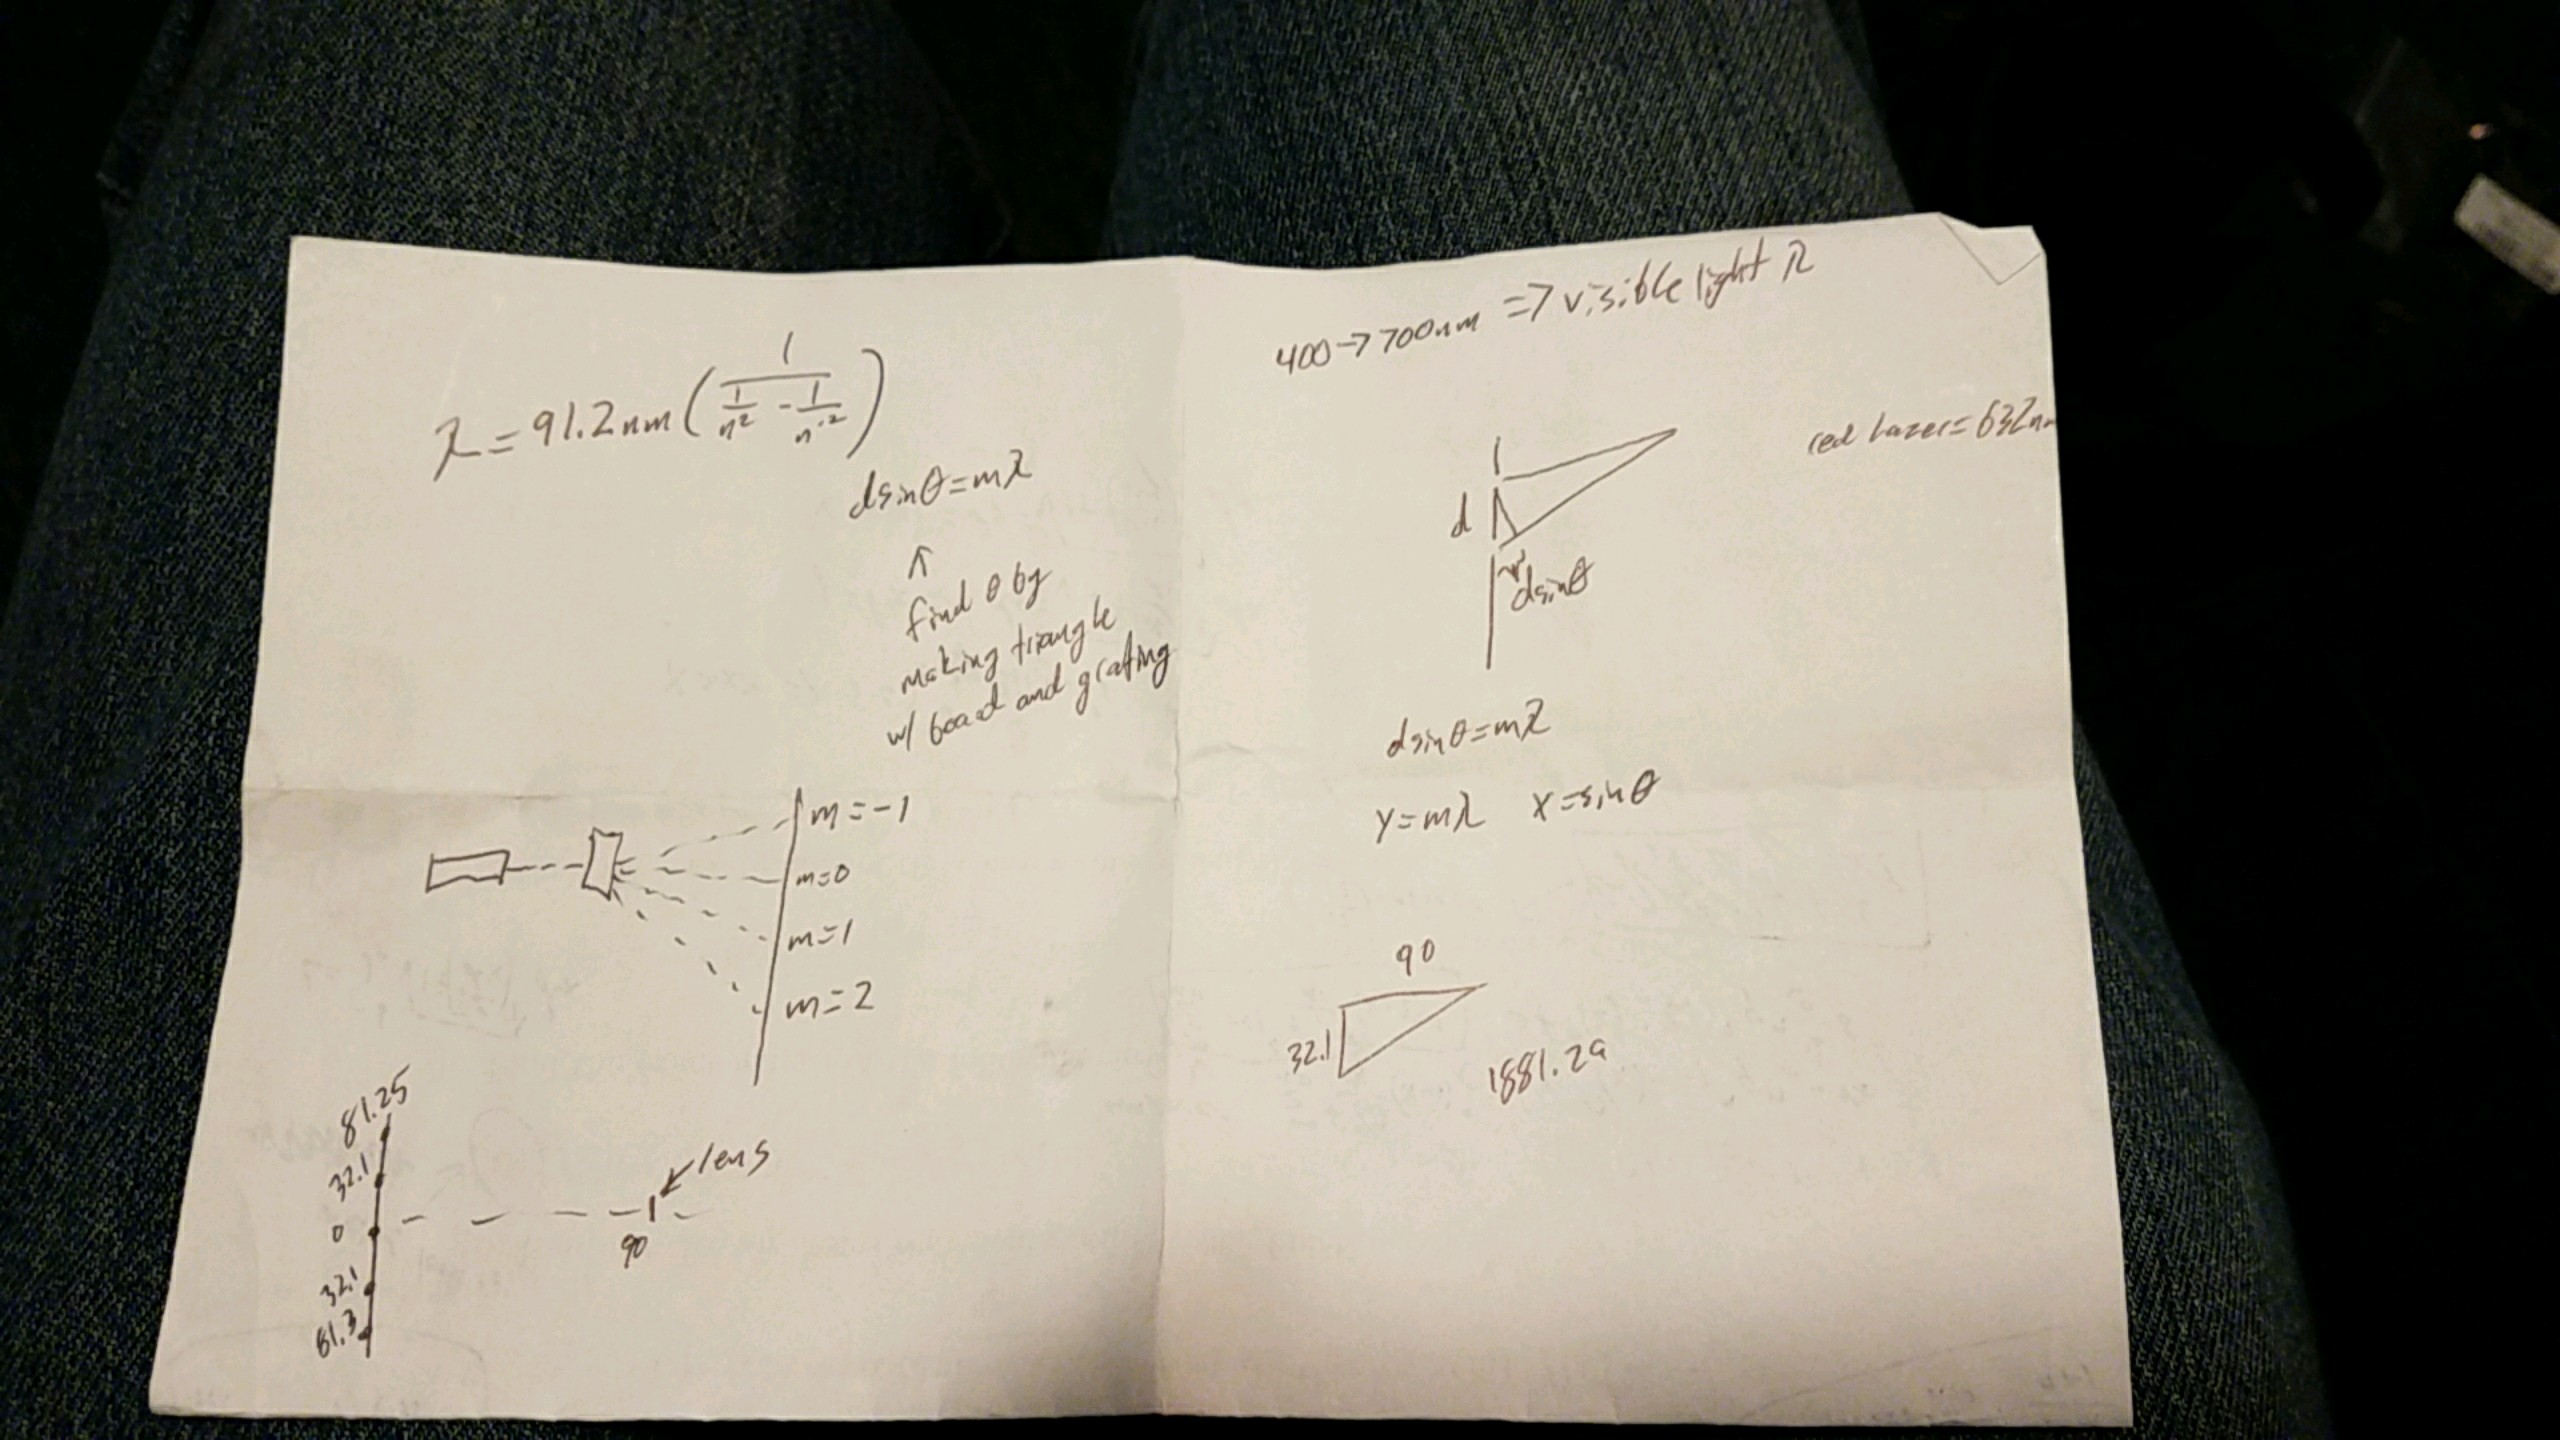 λ = 91.2nm (1 / (1/n² - 1/n'²))
dsinθ=mλ
↑
find θ by
making triangle
w/ boad and grating
m=-1
m=0
m=1
m=2
81.25
32.1
0
32.1
81.3
lens
90
400→700nm => visible light λ
red lazer= 632nm
d
dsinθ
dsinθ=mλ
Y=mλ X=sinθ
90
32.1
1881.29